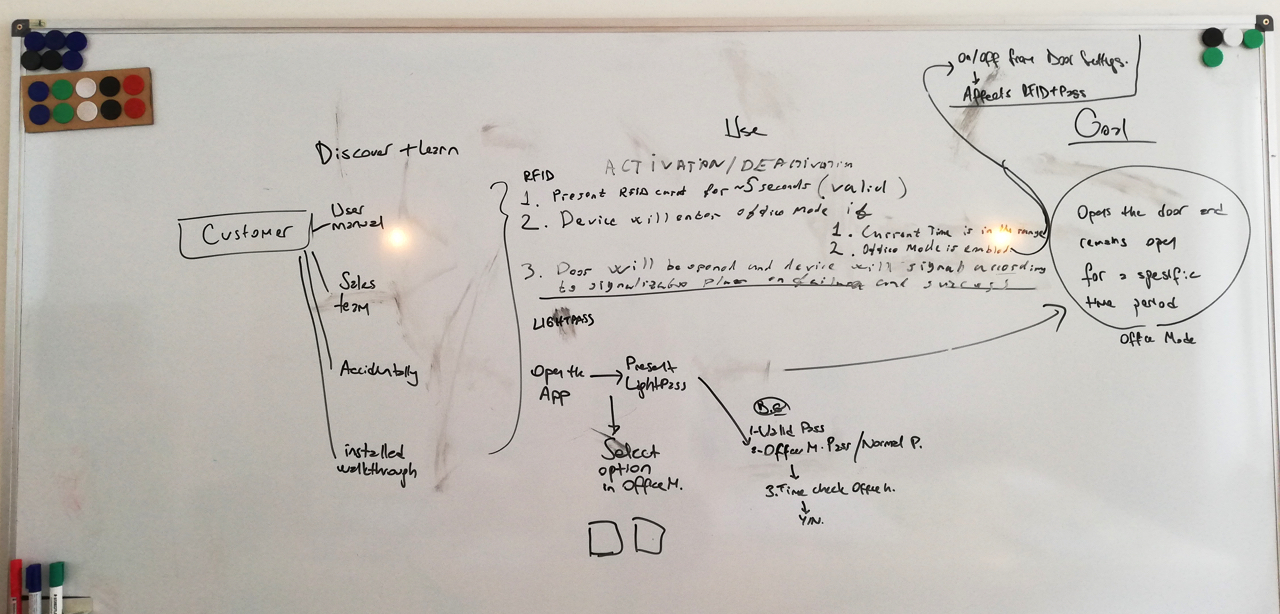 On/Off from Door Settings.
Affects RFID+Pass
Goal
Use
Discover + Learn
ACTIVATION/DEACTIVATION
RFID
1. Present RFID card for ~5 seconds (valid)
2. Device will enter office mode if
1. Current Time is in the range
2. Office Mode is enabled
3. Door will be opened and device will signal according
to signalization plan on failure and success
User
manual
Customer
Sales
team
Accidentally
installed
walkthrough
LIGHTPASS
Open the
App
Present
LightPass
Select
option
in Office M.
1-Valid Pass
2-Office M. Pass/Normal P.
3. Time check Office h.
Y/N.
Opens the door and
remains open
for a spesific
time period
Office Mode